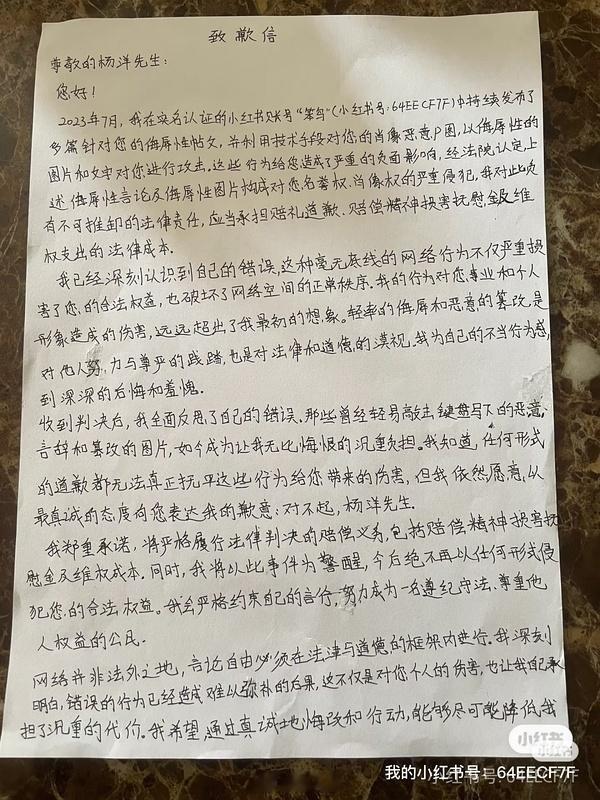 致歉信
尊敬的杨洋先生：
您好！
2023年7月，我在实名认证的小红书账号“笨鸟”(小红书号：64EECF7F)中持续发布了
多篇针对您的侮辱性帖文，并利用技术手段对您的肖像恶意P图，以侮辱性的
图片和文字对您进行攻击，这些行为给您造成了严重的负面影响，经法院认定，上
述侮辱性言论及侮辱性图片构成对您名誉权、肖像权的严重侵犯，我对此负
有不可推卸的法律责任，应当承担赔礼道歉、赔偿精神损害抚慰金及维
权支出的法律成本。
我已经深刻认识到自己的错误，这种毫无底线的网络行为不仅严重损
害了您的合法权益，也破坏了网络空间的正常秩序。我的行为对您事业和个人
形象造成的伤害，远远超出了我最初的想象。轻率的侮辱和恶意的篡改是
对他人努力与尊严的践踏，也是对法律和道德的漠视，我为自己的不当行为感
到深深的后悔和羞愧。
收到判决后，我全面反思了自己的错误、那些曾经轻易敲击键盘写下的恶意
言辞和篡改的图片，如今成为让我无比悔恨的沉重负担。我知道，任何形式
的道歉都无法真正抚平这些行为给你带来的伤害，但我依然愿意以
最真诚的态度向您表达我的歉意：对不起，杨洋先生。
我郑重承诺，将严格履行法律判决的赔偿义务，包括赔偿精神损害抚
慰金及维权成本，同时，我将以此事件为警醒，今后绝不再以任何形式侵
犯您的合法权益。我会严格约束自己的言行，努力成为一名遵纪守法、尊重他
人权益的公民。
网络并非法外之地，言论自由必须在法律与道德的框架内进行。我深刻
明白，错误的行为已经造成难以弥补的后果，这不仅是对您个人的伤害，也让我自己承
担了沉重的代价。我希望，通过真诚地悔改和行动，能够尽可能降低我
小红书
我的小红书号：64EECF7F
小红书号：64EECF7F